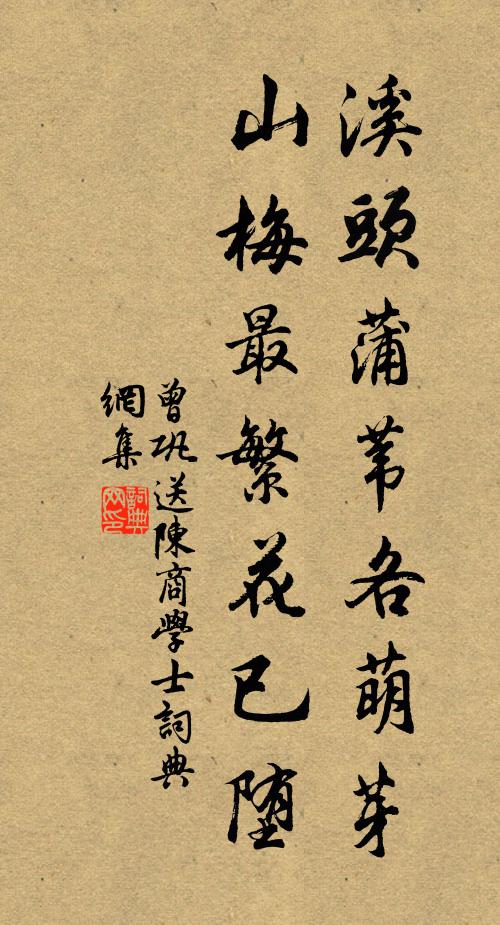 溪頭蒲葦各萌芽
山梅最繁花已堕
曾巩送陳商學士詞典
網集
詞典
网印